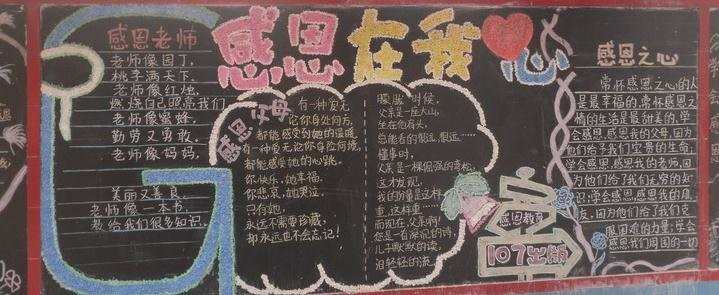 感恩在我心
感恩老师
老师像园丁,
桃李满天下.
老师像红烛,
燃烧自己照亮我们
老师像蜜蜂,
勤劳又勇敢.
老师像妈妈,
美丽又善良
老师像一本书,
教给我们很多知识.
感恩父母
有一种爱无
论你身处何方,
都能感受到她的温暖
有一种爱无论你身陷何境,
都能感受她的心跳。
你快乐,她幸福,
你悲哀,她哭泣,
只有她,
永远不需要珍藏,
却永远也不会忘记!
时候,
父亲是一座山,
坐在他肩头,
总能看的很远,很远……
懂事时,
父亲是一棵倔强的
这才发现,
我的份量是这样
重,这样重
而现在,父亲啊!
您是一首深沉的诗,
儿子默默的读,
泪轻轻的流
感恩之心
常怀感恩之心的人
是最幸福的,常怀感恩之
情的生活是最甜美的.学
会感恩,感恩我的父母,因为
他们给予我们宝贵的生命;
学会感恩,感恩我的老师,因
为他们给了我们无穷的知
识;学会感恩,感恩我的朋
友,因为他们给了我们克
服困难的力量;学会
感恩我们周围的一切
感恩教育
107出版